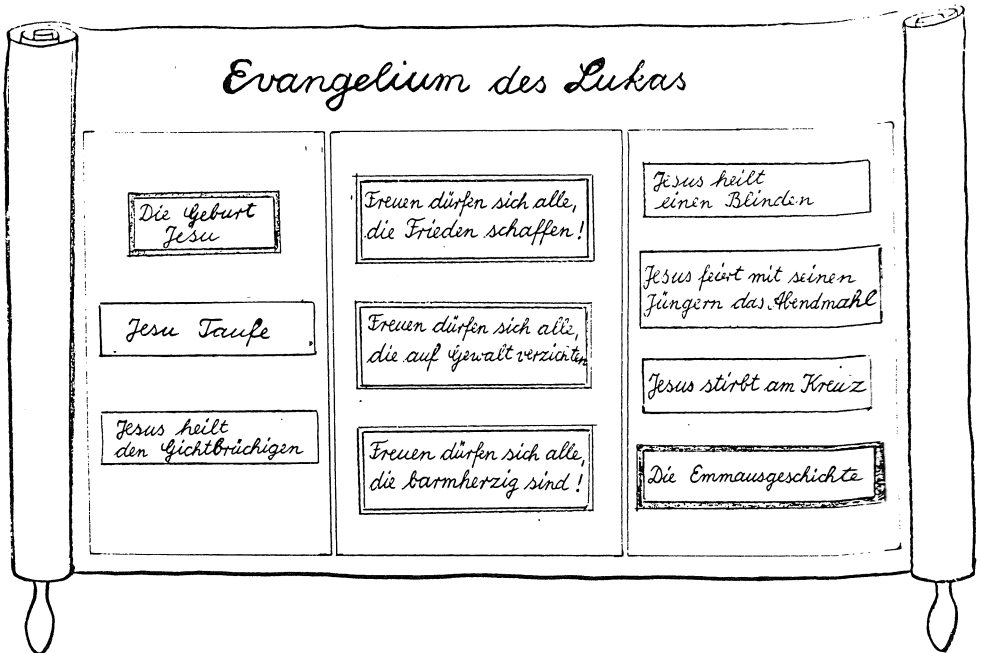 Evangelium des Lukas
Die Geburt
Jesu
Jesu Taufe
Jesus heilt
den Gichtbrüchigen
Freuen dürfen sich alle,
die Frieden schaffen!
Freuen dürfen sich alle,
die auf Gewalt verzichten
Freuen dürfen sich alle,
die barmherzig sind!
Jesus heilt
einen Blinden
Jesus feiert mit seinen
Jüngern das Abendmahl
Jesus stirbt am Kreuz
Die Emmausgeschichte